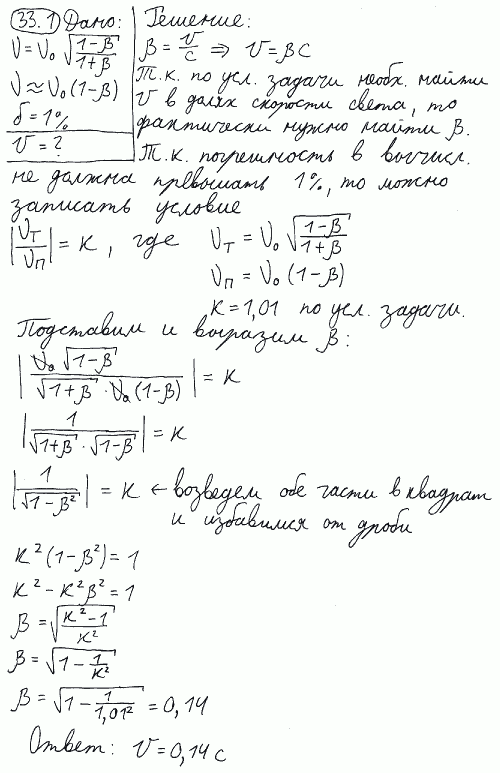 33.1 Дано:
ν = ν₀ √((1-β)/(1+β))
ν ≈ ν₀(1-β)
δ = 1%
v = ?
Решение:
β = v/c ⇒ v = βc
Т.к. по усл. задачи необх. найти
v в долях скорости света, то
фактически нужно найти β.
Т.к. погрешность в вычисл.
не должна превышать 1%, то можно
записать условие
|ν_T/ν_П| = K, где ν_T = ν₀ √((1-β)/(1+β))
ν_П = ν₀ (1-β)
K = 1,01 по усл. задачи.
Подставим и выразим β:
|ν₀ √(1-β) / (√(1+β) · ν₀ (1-β))| = K
|1 / (√(1+β) · √(1-β))| = K
|1 / √(1-β²)| = K ← возведем обе части в квадрат
и избавимся от дроби
K²(1-β²) = 1
K² - K²β² = 1
β = √((K²-1)/K²)
β = √(1 - 1/K²)
β = √(1 - 1/1,01²) = 0,14
Ответ: v = 0,14 c